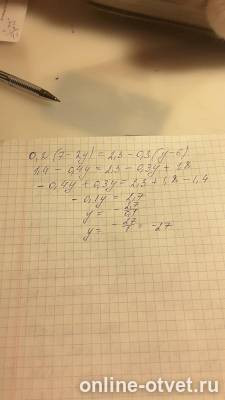 0,2(7-2y) = 2,3 - 0,3(y-6)
1,4 - 0,4y = 2,3 - 0,3y + 1,8
-0,4y + 0,3y = 2,3 + 1,8 - 1,4
-0,1y = 2,7
y = -2,7/0,1
y = -27/1 = -27
online-otvet.ru